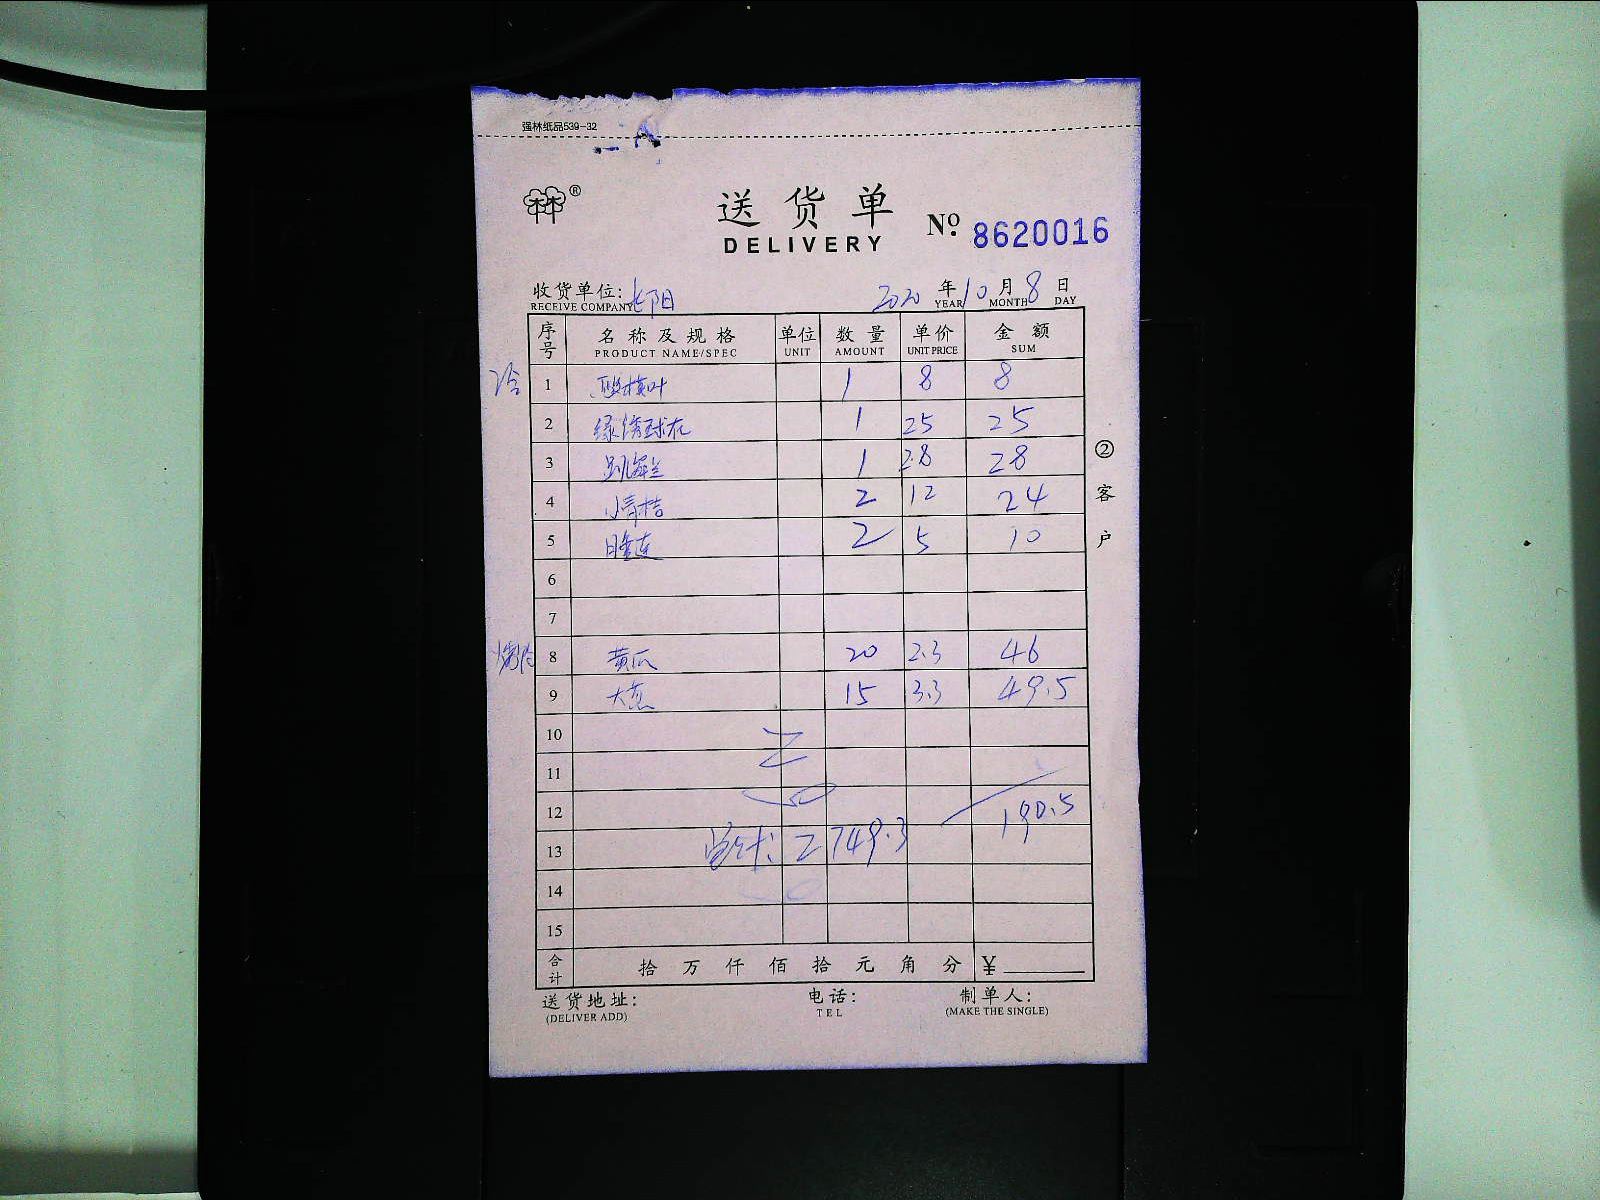 强林纸品539-32
林林®
送货单
DELIVERY
No. 8620016
收货单位: 2020 年 10 月 8 日
RECEIVE COMPANY YEAR MONTH DAY
序号 名称及规格 单位 数量 单价 金额
PRODUCT NAME/SPEC UNIT AMOUNT UNIT PRICE SUM
冷 1 1 8 8
2 绿绣球花 1 25 25
3 跳舞兰 1 28 28
4 小青桔 2 12 24
5 2 5 10
6
7
8 黄瓜 20 2.3 46
9 大葱 15 3.3 49.5
10
11
12 190.5
13 2749.3
14
15
合计 拾 万 仟 佰 拾 元 角 分 ¥
送货地址: 电话: 制单人:
(DELIVER ADD) TEL (MAKE THE SINGLE)
②客户